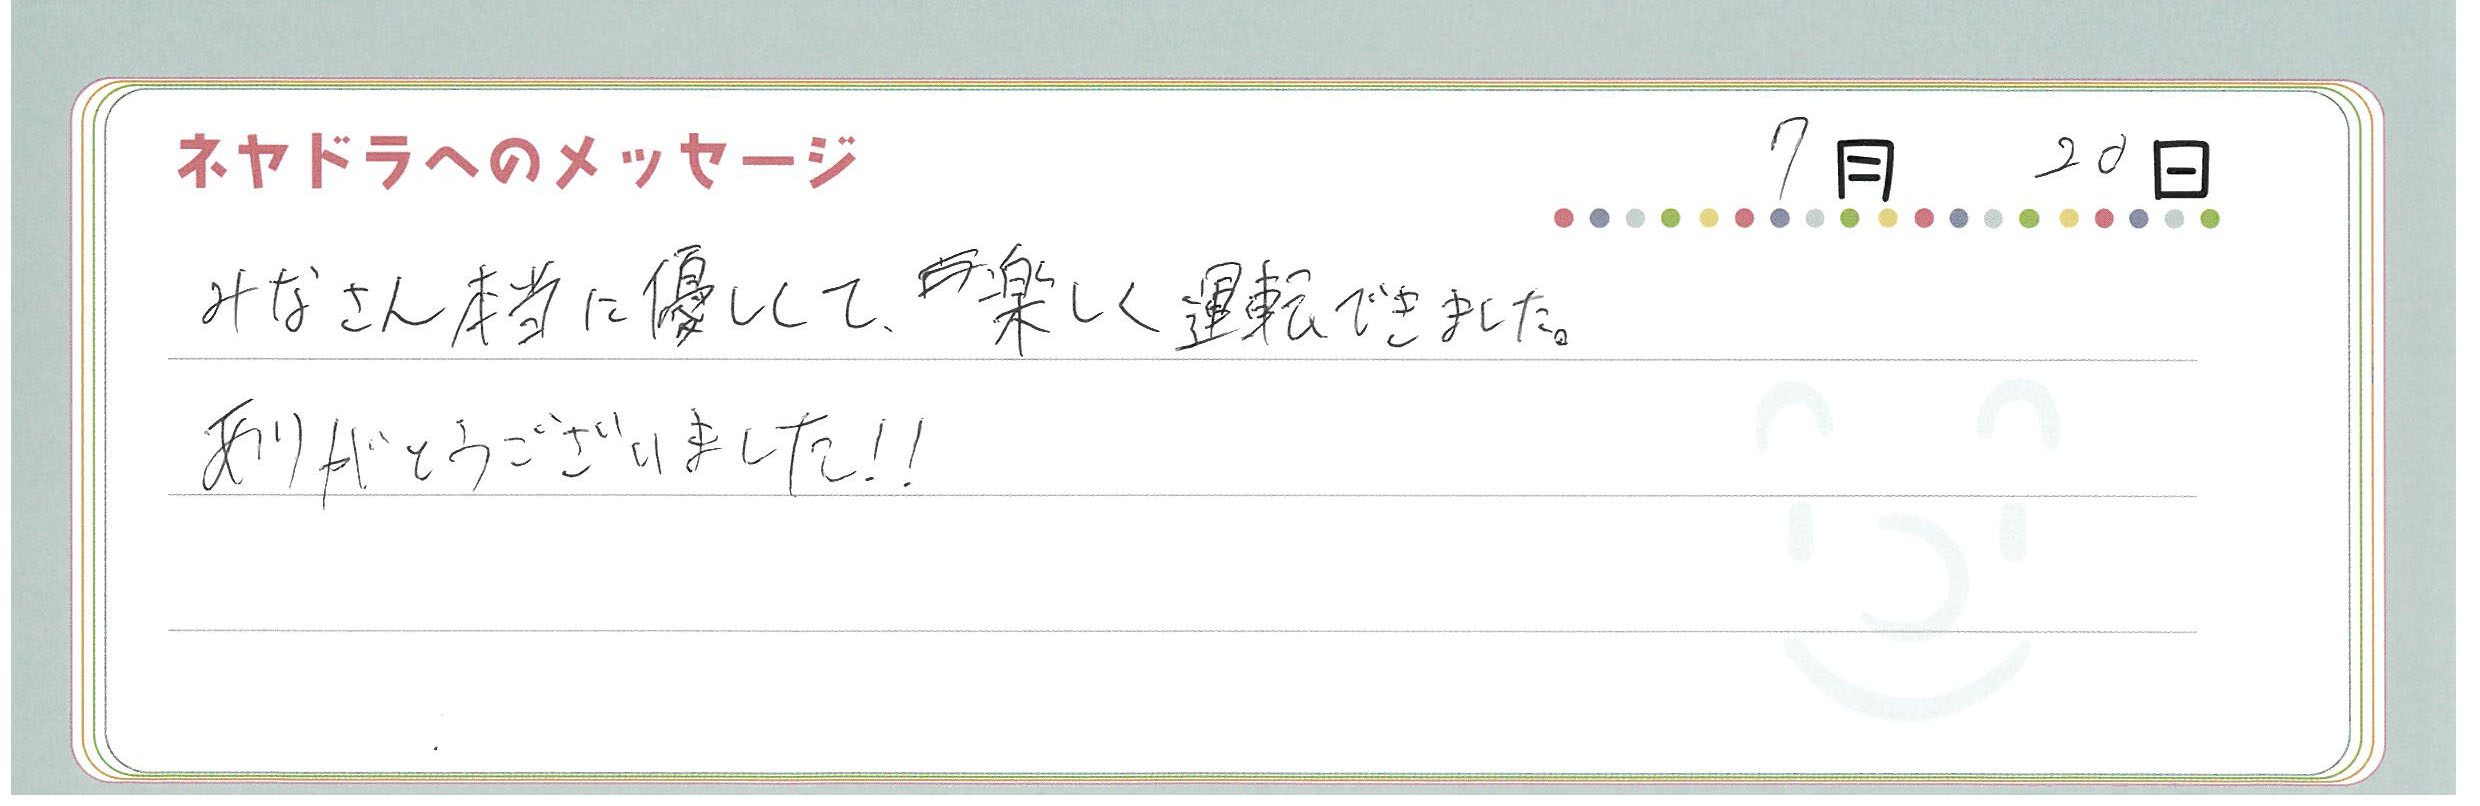 ネヤドラへのメッセージ
7月 20日
みなさん本当に優しくて、楽しく運転できました。
ありがとうございました!!